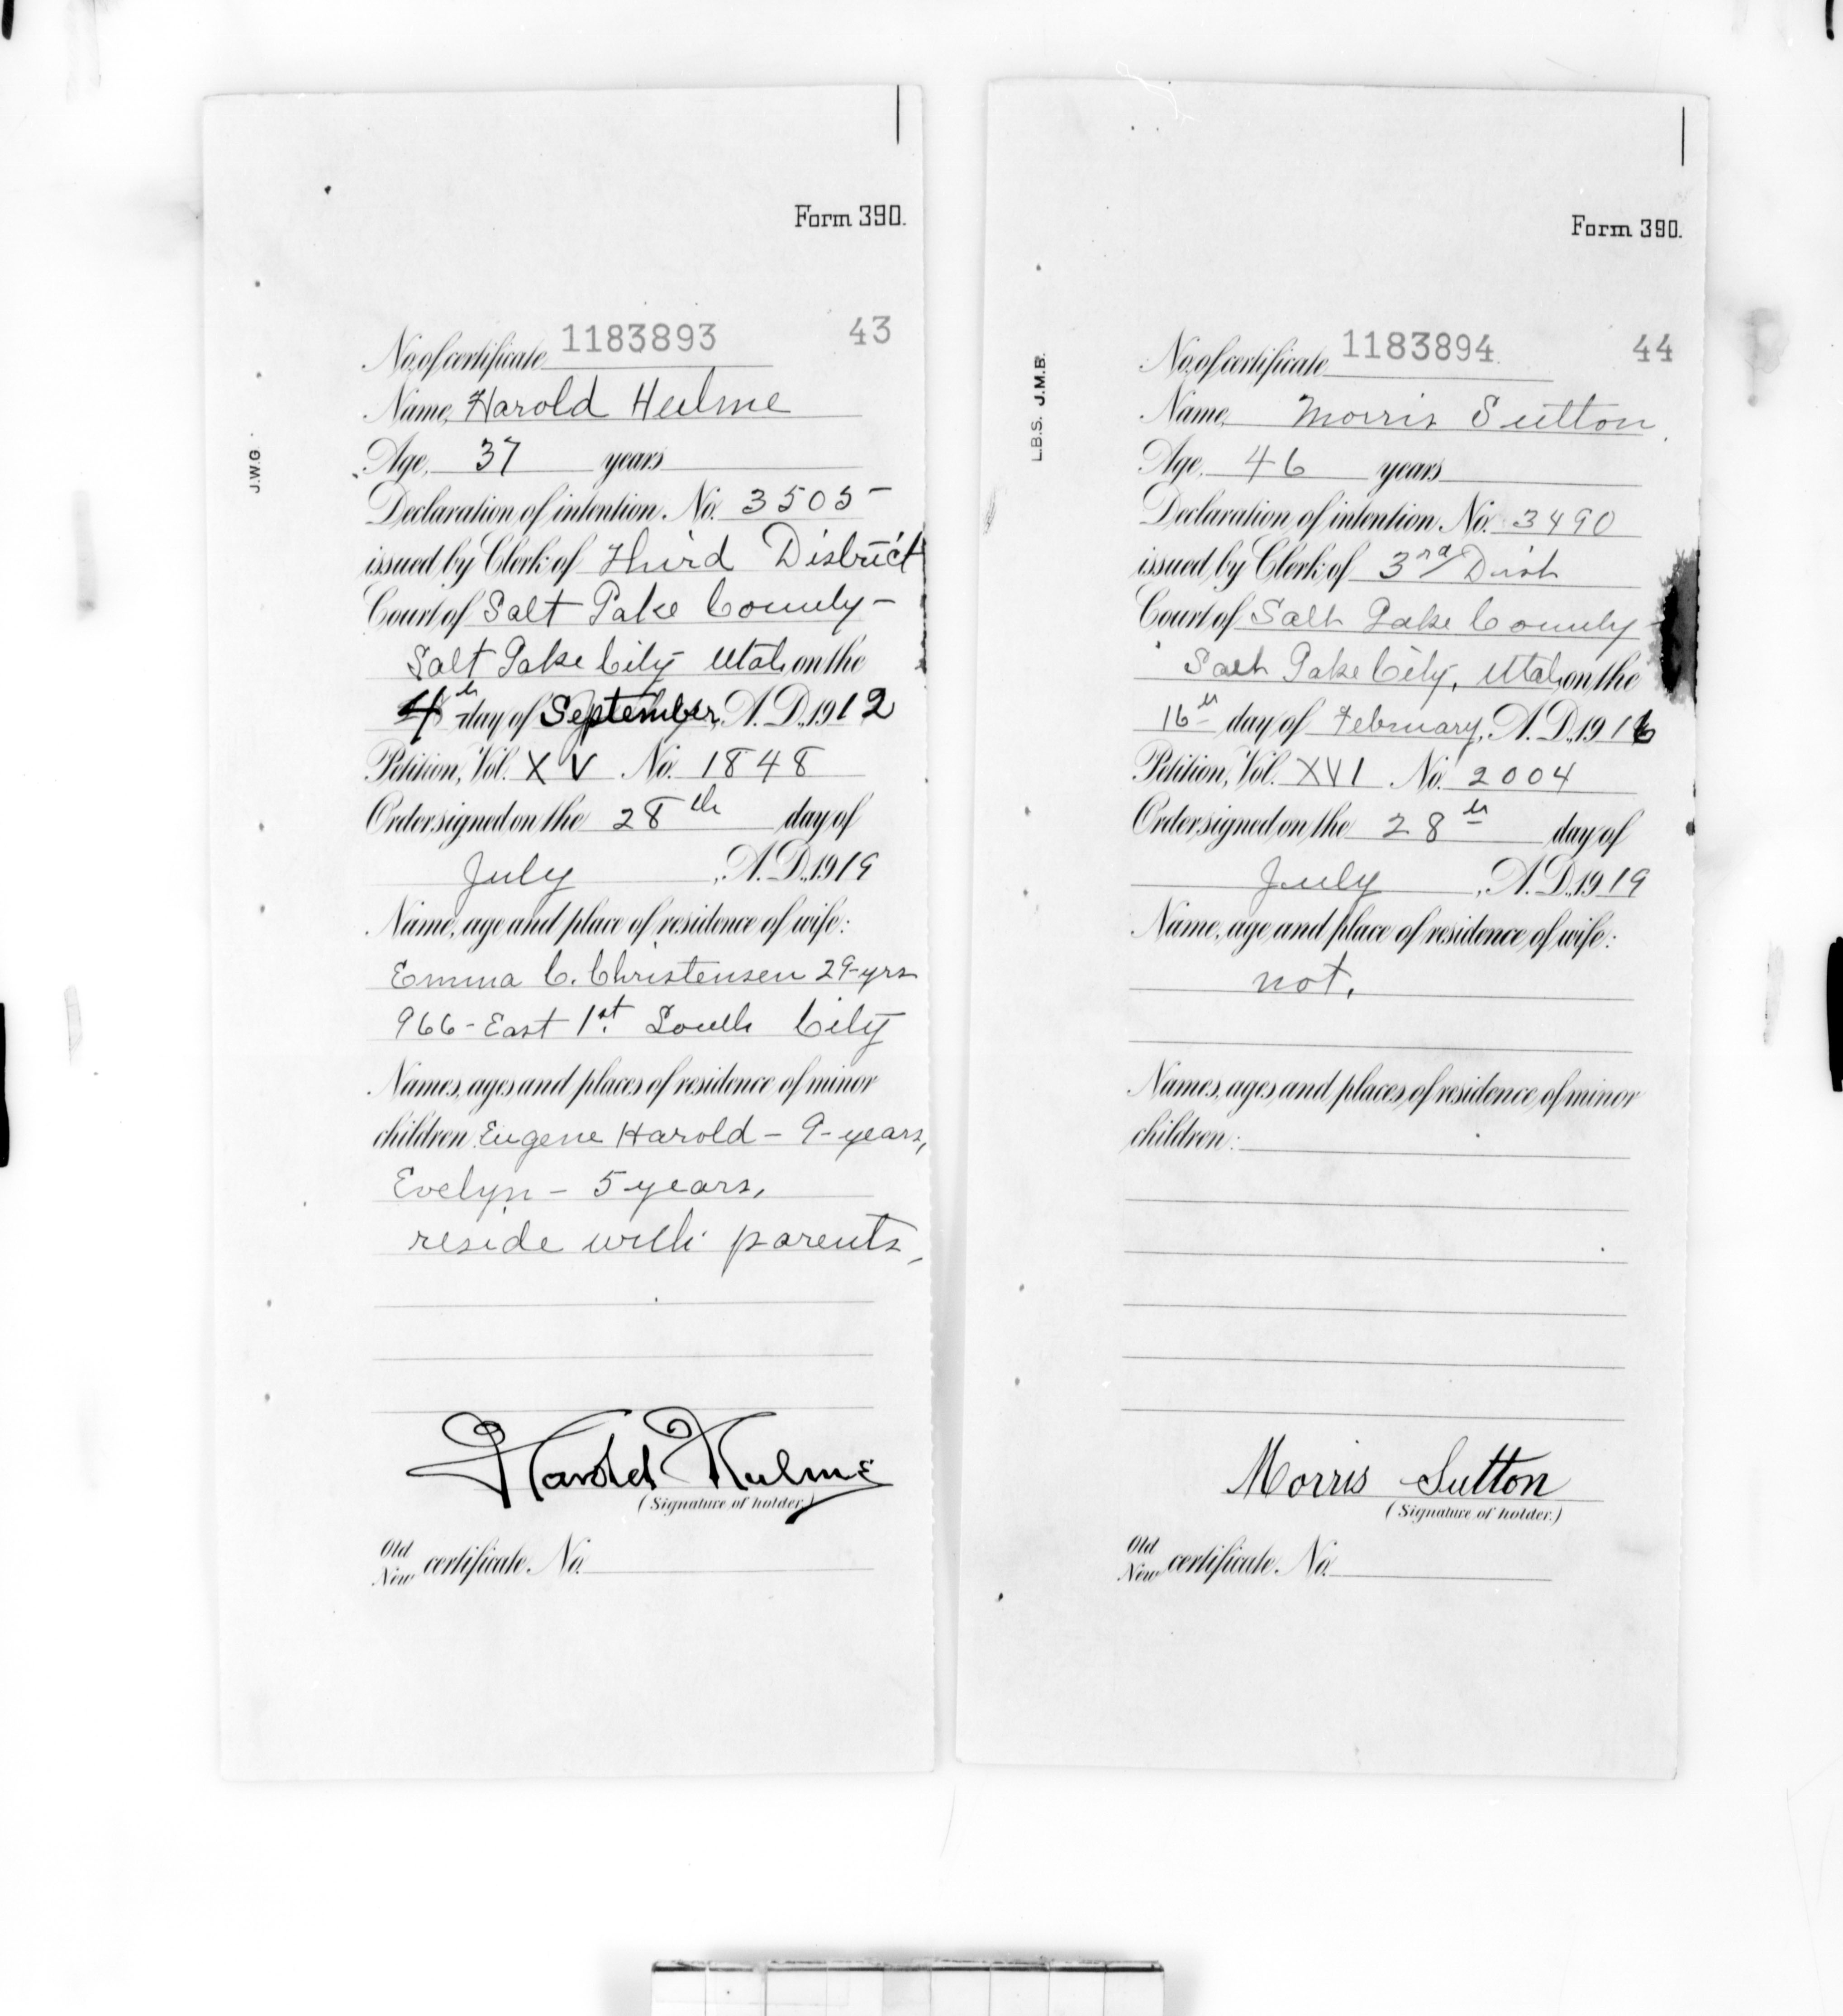 Form 390.
J.W.G.
No. of certificate 1183893 43
Name, Harold Hulme
Age, 37 years
Declaration of intention, No. 3505
issued by Clerk of Third District
Court of Salt Lake County –
Salt Lake City Utah, on the
4th day of September, A.D., 1912
Petition, Vol. XV No. 1848
Order signed on the 28th day of
July, A.D., 1919
Name, age and place of residence of wife:
Emma C. Christensen 29-yrs
966 - East 1st. South City
Names, ages and places of residence of minor
children Eugene Harold – 9-years,
Evelyn – 5 years,
reside with parents,
Harold Hulme
(Signature of holder.)
Old
New certificate, No.
Form 390.
L.B.S. J.M.B.
No. of certificate 1183894 44
Name, Morris Sutton
Age, 46 years
Declaration of intention, No. 3490
issued by Clerk of 3rd Dist
Court of Salt Lake County
Salt Lake City, Utah, on the
16th day of February, A.D., 1916
Petition, Vol. XVI No. 2004
Order signed on the 28th day of
July, A.D., 1919
Name, age and place of residence of wife:
not.
Names, ages and places of residence of minor
children:
Morris Sutton
(Signature of holder.)
Old
New certificate, No.